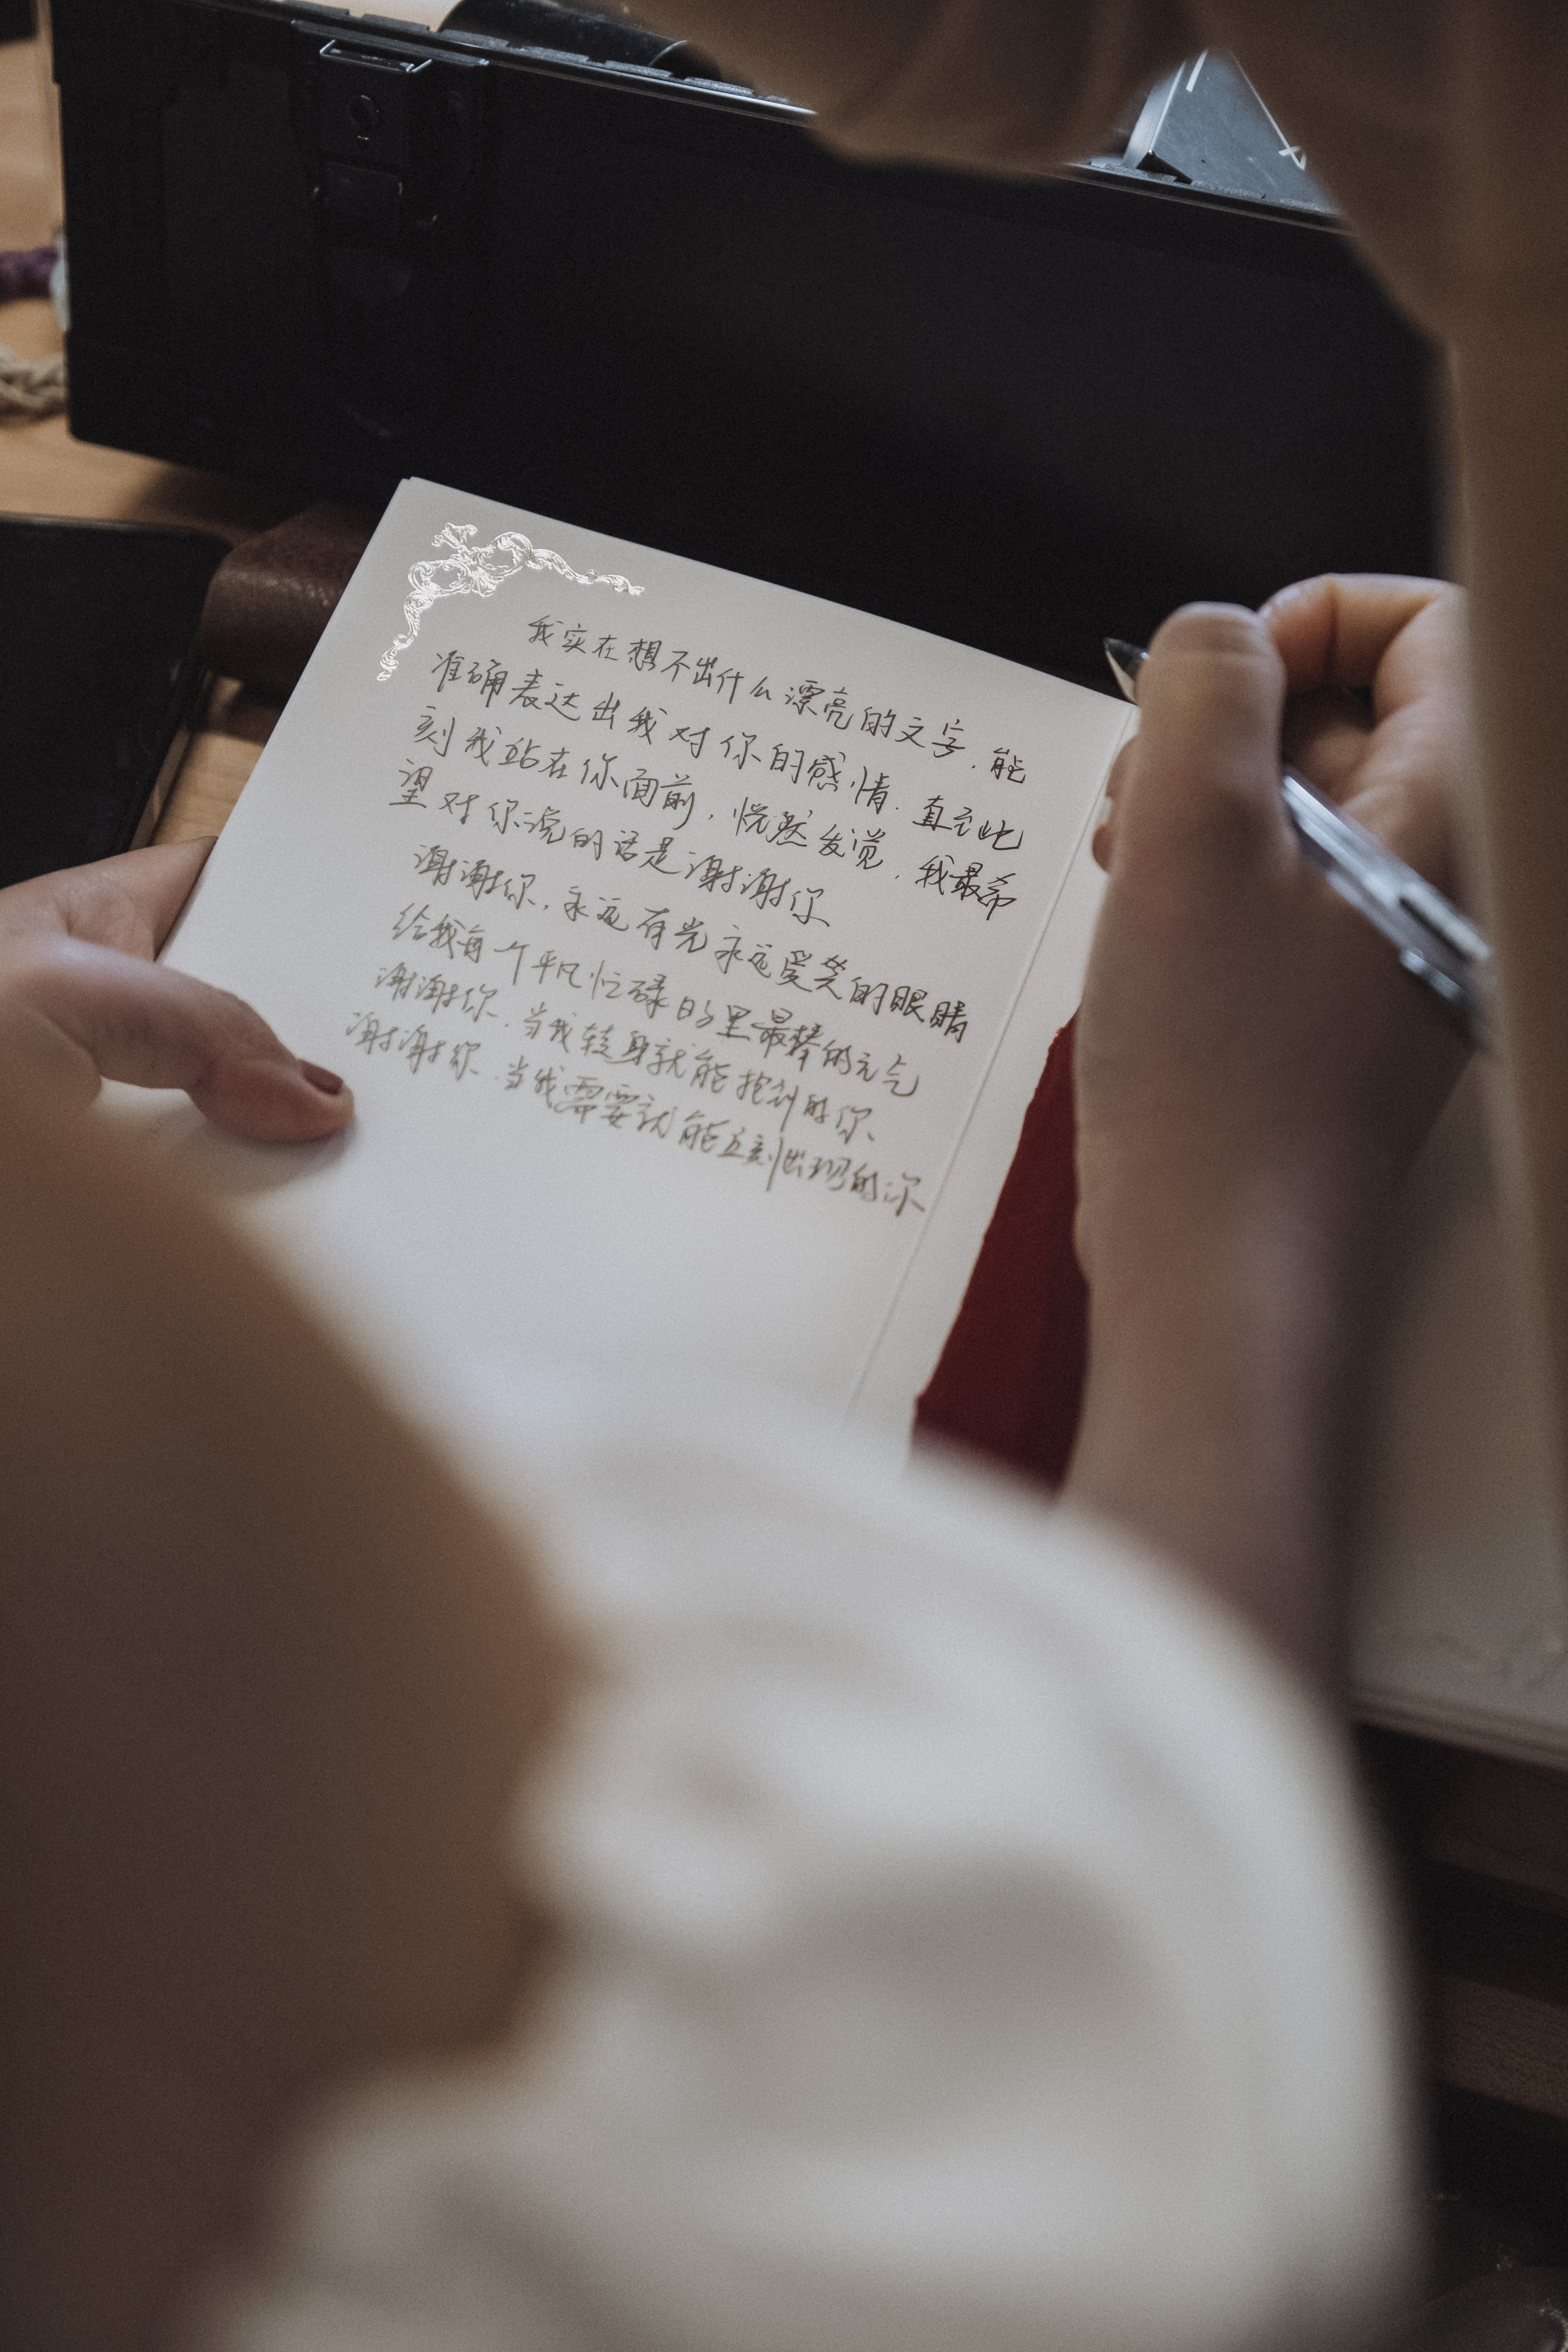 我实在想不出什么漂亮的文字，能
准确表达出我对你的感情．直至此
刻我站在你面前，恍然发觉，我最希
望对你说的话是谢谢你
谢谢你，永远有光永远爱笑的眼睛
给我每一个平凡忙碌日子里最棒的元气
谢谢你．当我转身就能抱到的你、
谢谢你．当我需要就能立刻出现的你